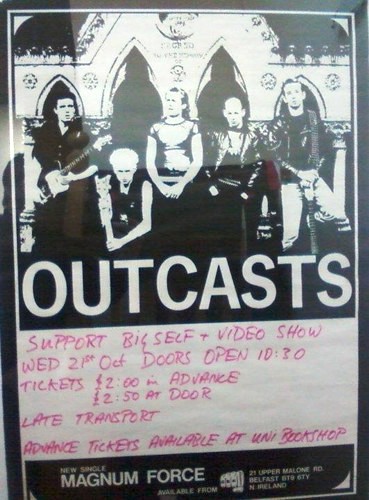 OUTCASTS
SUPPORT BIG SELF + VIDEO SHOW
WED 21st Oct DOORS OPEN 10:30
TICKETS £2:00 in ADVANCE
£2:50 AT DOOR
LATE TRANSPORT
ADVANCE TICKETS AVAILABLE AT UNI BOOKSHOP
NEW SINGLE
MAGNUM FORCE
AVAILABLE FROM
21 UPPER MALONE RD.
BELFAST BT9 6TY
N. IRELAND